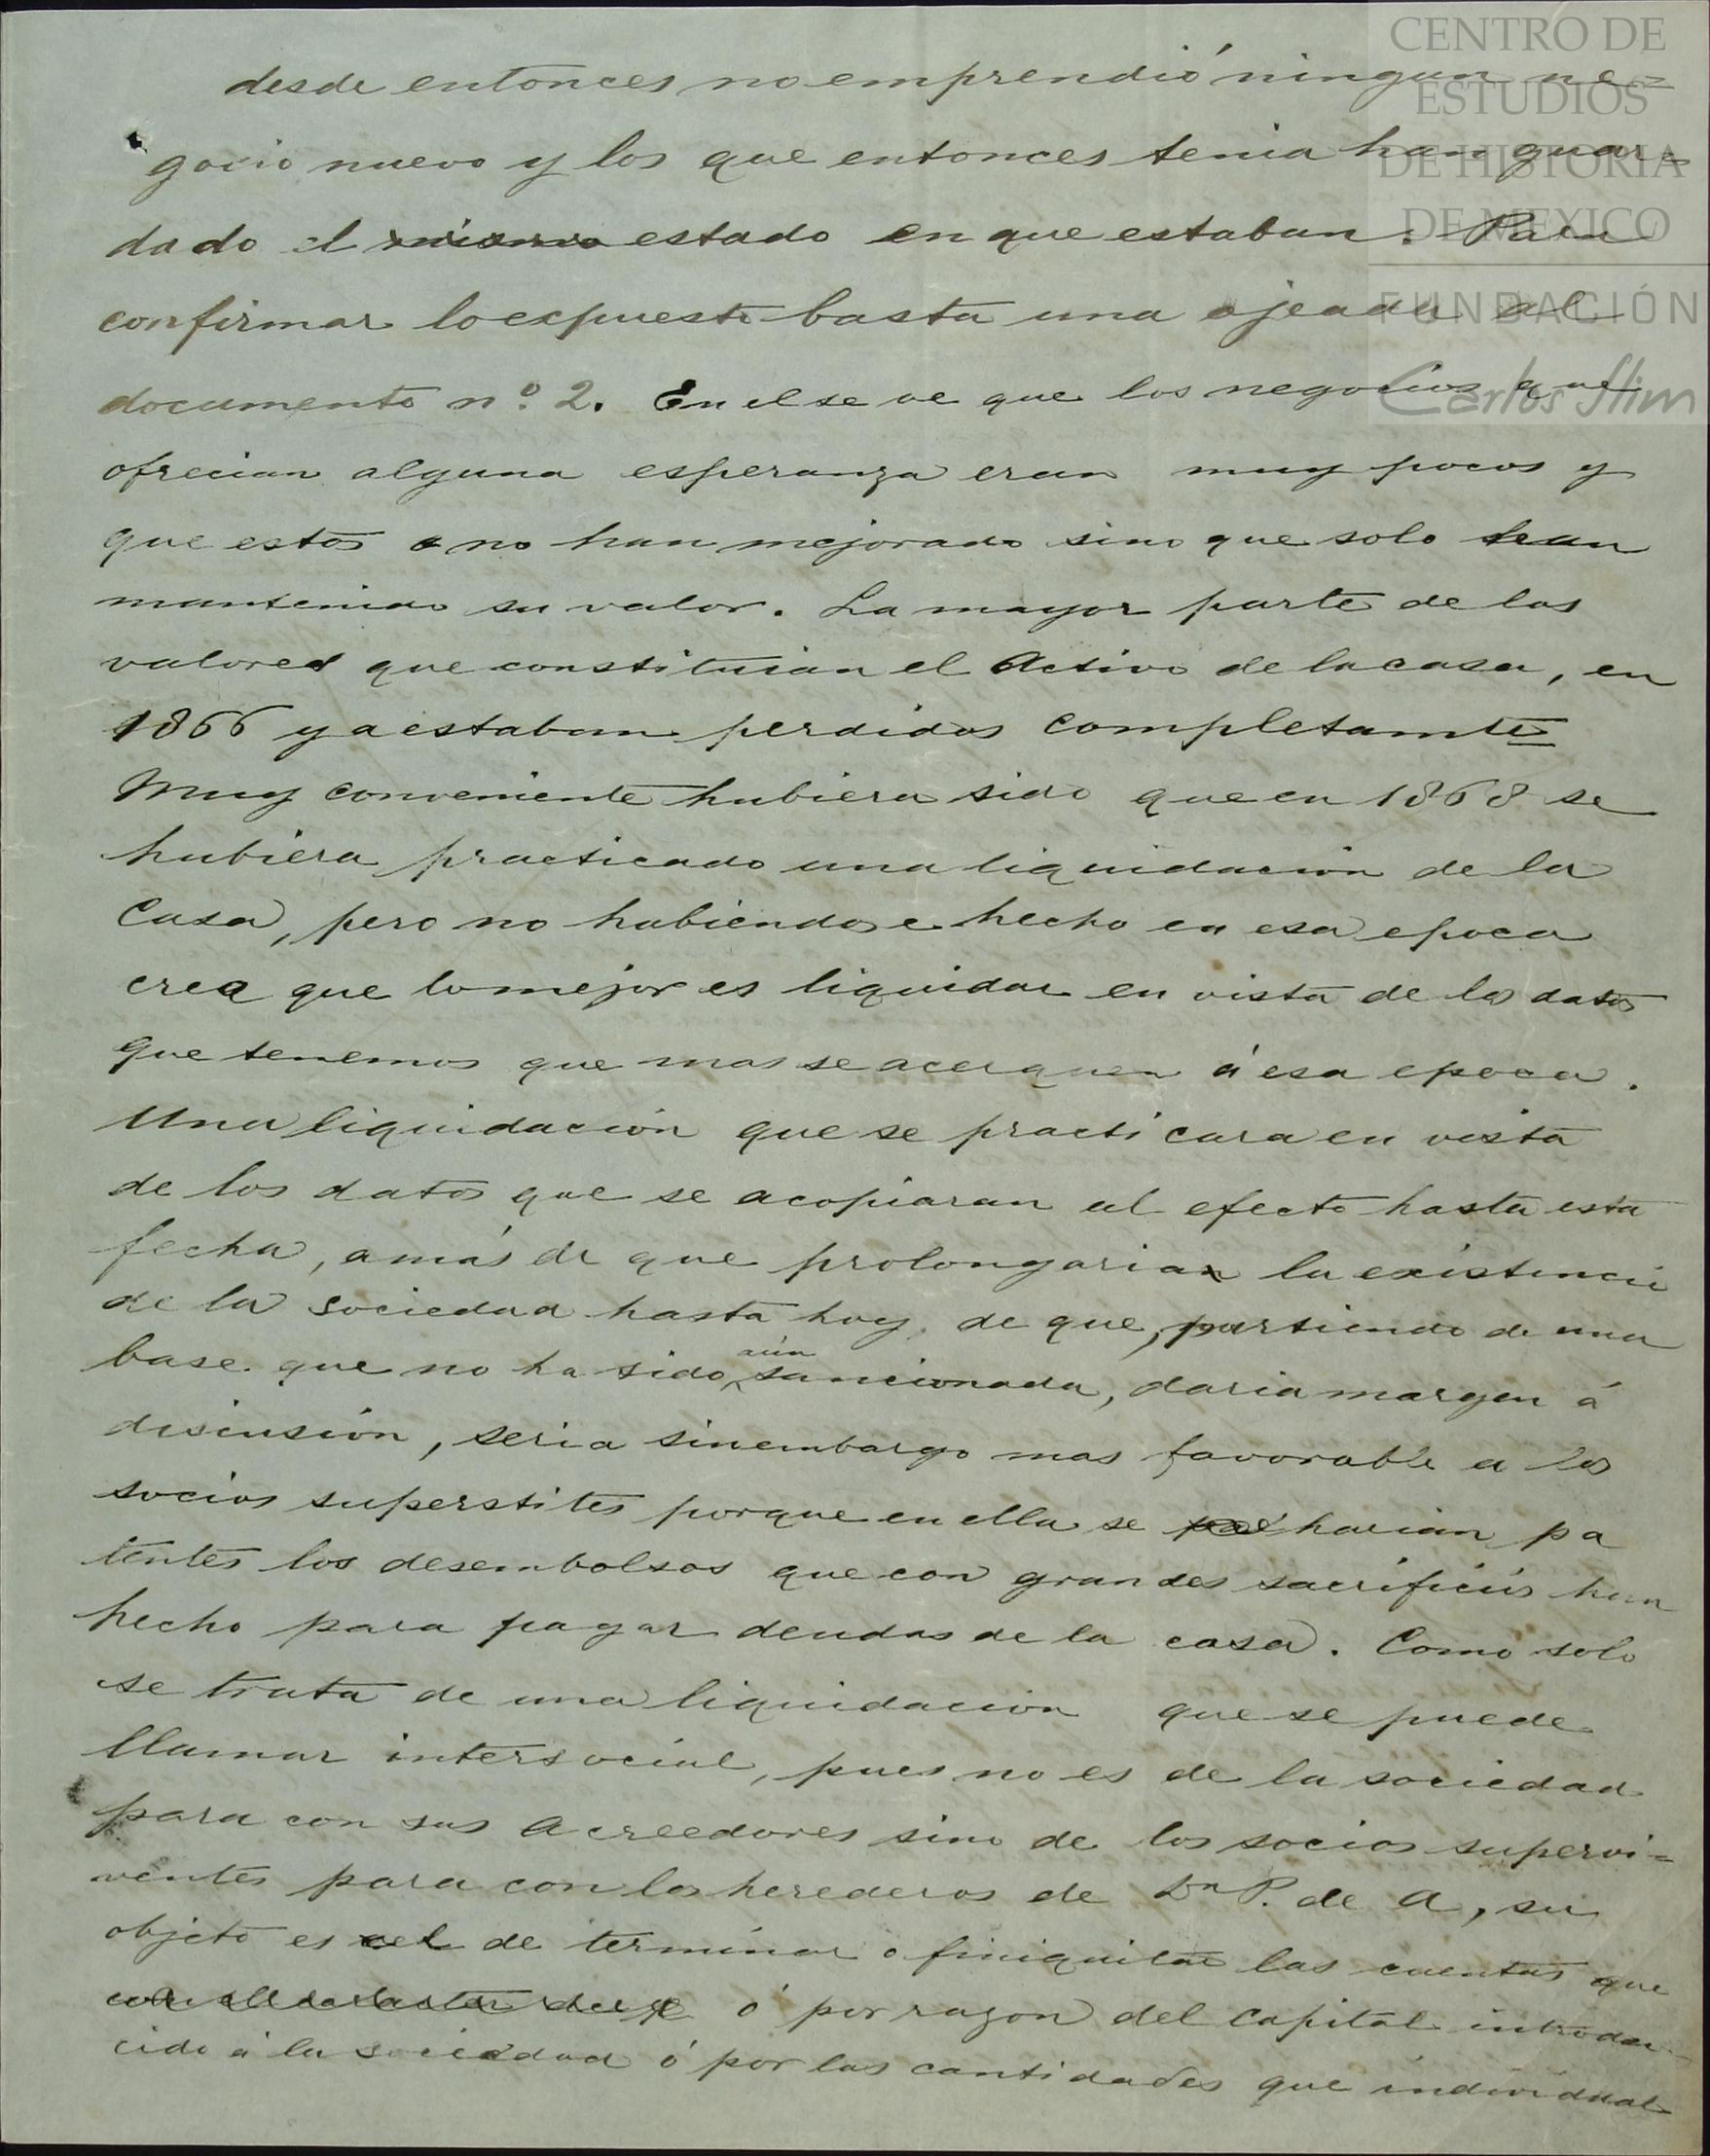 CENTRO DE
ESTUDIOS
DE HISTORIA
DE MEXICO
FUNDACIÓN
Carlos Slim
desde entonces no emprendió ningun ne=
gocio nuevo y los que entonces tenia han guar=
dado el mismo estado en que estaban. Para
confirmar lo expuesto basta una ojeada al
documento nº 2. En el se ve que los negocios que
ofrecian alguna esperanza eran muy pocos y
que estos no han mejorado sino que solo han
mantenido su valor. La mayor parte de los
valores que constituian el Activo de la casa, en
1866 ya estaban perdidos completamte
Muy conveniente hubiera sido que en 1868 se
hubiera practicado una liquidacion de la
Casa, pero no habiendose hecho en esa epoca
crea que lo mejor es liquidar en vista de los datos
que tenemos que mas se acerquen á esa epoca.
Una liquidación que se practicara en vista
de los datos que se acopiaran al efecto hasta esta
fecha, a más de que prolongaria la existencia
de la sociedad hasta hoy, de que, partiendo de una
base que no ha sido aún sancionada, daria margen á
discusión, seria sinembargo mas favorable a los
socios superstites porque en ella se harian pa
tentes los desembolsos que con grandes sacrificios han
hecho para pagar deudas de la casa. Como solo
se trata de una liquidacion que se puede
llamar intersocial, pues no es de la sociedad
para con sus acreedores sino de los socios supervi=
ventes para con los herederos de Dn P. de A, su
objeto es el de terminar o finiquitar las cuentas que
ó por razon del capital introdu
cido á la sociedad ó por las cantidades que individual